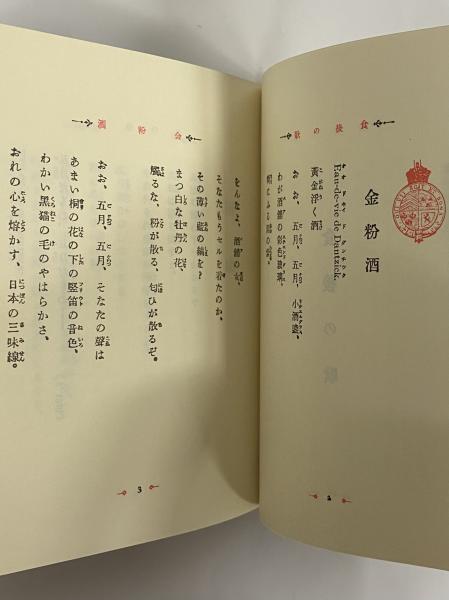 食後の歌
金粉酒
Eau-de-vie de Dantzick.
黄金浮く酒、
おお、五月、五月、小酒盞、
わが酒舗の彩色玻璃、
街にふる雨の紫。
2
金粉酒
をんなよ、酒舗の女、
そなたもうセルを著たのか、
その薄い藍の縞を?
まつ白な牡丹の花、
觸るな、粉が散る、匂ひが散るぞ。
おお、五月、五月、そなたの聲は
あまい桐の花の下の竪笛の音色、
わかい黒猫の毛のやはらかさ、
おれの心を熔かす、日本の三味線。
3